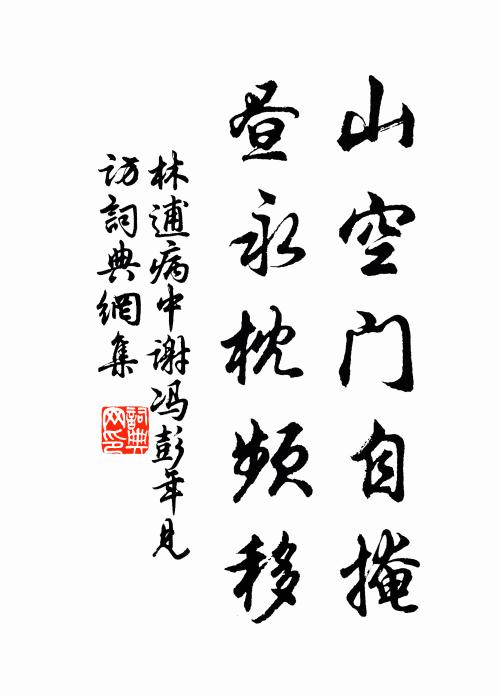 山空门自掩
昼永枕频移
林逋病中谢冯彭年见
访詞典網集
詞典
网印